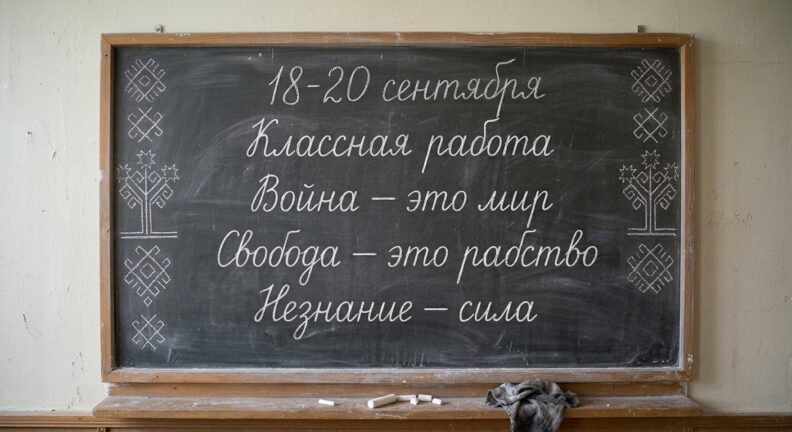 18-20 сентября
Классная работа
Война – это мир
Свобода – это рабство
Незнание – сила